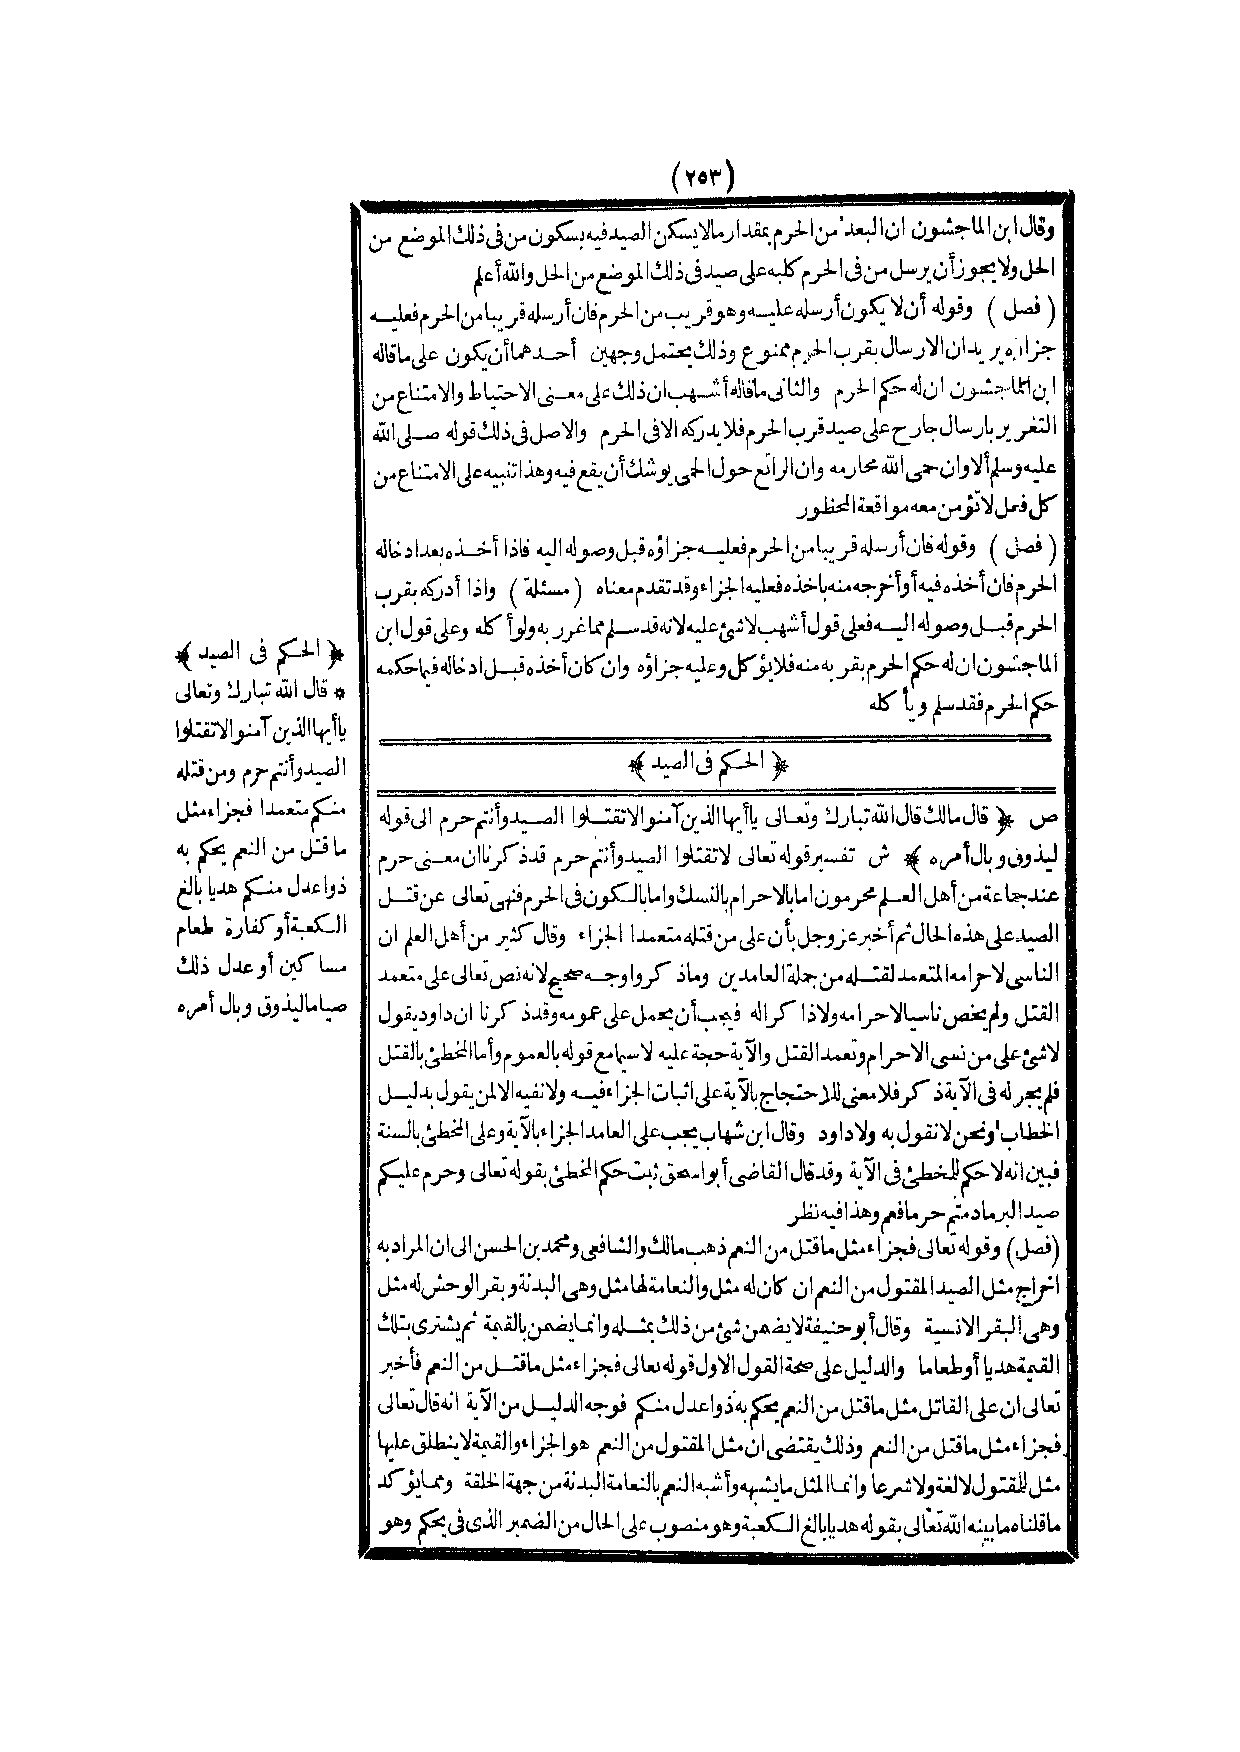 (٢٥٣)
وقال ابن الماجشون ان البعد من الحرم بمقدار مالا يسكن الصيد فيه بسكون من فى ذلك الموضع من
الحل ولا يجوز أن يرسل من فى الحرم كلبه على صيد فى ذلك الموضع من الحل والله أعلم
(فصل) وقوله أن لا يكون أرسله عليه وهو قريب من الحرم فان أرسله قريبا من الحرم فعليه
جزاؤه يريد ان الارسال بقرب الحرم ممنوع وذلك يحتمل وجهين أحدهما أن يكون على ما قاله
ابن الماجشون ان له حكم الحرم والثانى ما قاله أشهب ان ذلك على معنى الاحتياط والامتناع من
التغرير بارسال جارح على صيد قرب الحرم فلا يدركه الا فى الحرم والاصل فى ذلك قوله صلى الله
عليه وسلم ألا وان حمى الله محارمه وان الراتع حول الحمى يوشك أن يقع فيه وهذا تنبيه على الامتناع من
كل فعل لا تؤمن معه مواقعة المحظور
(فصل) وقوله فان أرسله قريبا من الحرم فعليه جزاؤه قبل وصوله اليه فاذا أخذه بعد ادخاله
الحرم فان أخذه فيه أو أخرجه منه باخذه فعليه الجزاء وقد تقدم معناه (مسئلة) واذا أدركه بقرب
الحرم قبل وصوله اليه فعلى قول أشهب لا شئ عليه لانه قد سلم مما غرر به ولو أكله وعلى قول ابن
الماجشون ان له حكم الحرم بقربه منه فلا يؤكل وعليه جزاؤه وان كان أخذه قبل ادخاله فيما حكمه
حكم الحرم فقد سلم ويأكله
﴿ الحكم فى الصيد ﴾
ص ﴿ قال مالك قال الله تبارك وتعالى يا أيها الذين آمنوا لا تقتلوا الصيد وأنتم حرم الى قوله
ليذوق وبال أمره ﴾ ش تفسير قوله تعالى لا تقتلوا الصيد وأنتم حرم قد ذكرنا ان معنى حرم
عند جماعة من أهل العلم محرمون اما بالاحرام بالنسك واما بالكون فى الحرم فنهى تعالى عن قتل
الصيد على هذه الحال ثم أخبر عز وجل بأن على من قتله متعمدا الجزاء وقال كثير من أهل العلم ان
الناسى لاحرامه المتعمد لقتله من جملة العامدين وما ذكروا وجه صحيح لانه نص تعالى على متعمد
القتل ولم يخص ناسيا لاحرامه ولا ذاكرا له فيجب أن يحمل على عمومه وقد ذكرنا ان داود يقول
لا شئ على من نسى الاحرام وتعمد القتل والآية حجة عليه لا سيما مع قوله بالعموم وأما المخطئ بالقتل
فلم يجر له فى الآية ذكر فلا معنى للاحتجاج بالآية على اثبات الجزاء فيه ولا نفيه الا لمن يقول بدليل
الخطاب ونحن لا نقول به ولا داود وقال ابن شهاب يجب على العامد الجزاء بالآية وعلى المخطئ بالسنة
فبين انه لا حكم للمخطئ فى الآية وقد قال القاضى أبو اسحق ثبت حكم المخطئ بقوله تعالى وحرم عليكم
صيد البر ما دمتم حرما فهم وهذا فيه نظر
(فصل) وقوله تعالى فجزاء مثل ما قتل من النعم ذهب مالك والشافعى ومحمد بن الحسن الى ان المراد به
اخراج مثل الصيد المقتول من النعم ان كان له مثل والنعامة لها مثل وهى البدنة وبقر الوحش له مثل
وهى البقر الانسية وقال أبو حنيفة لا يضمن شئ من ذلك بمثله وانما يضمن بالقيمة ثم يشترى بتلك
القيمة هديا أو طعاما والدليل على صحة القول الاول قوله تعالى فجزاء مثل ما قتل من النعم فأخبر
تعالى ان على القاتل مثل ما قتل من النعم يحكم به ذوا عدل منكم فوجه الدليل من الآية انه قال تعالى
فجزاء مثل ما قتل من النعم وذلك يقتضى ان مثل المقتول من النعم هو الجزاء والقيمة لا ينطلق عليها
مثل للمقتول لا لغة ولا شرعا وانما المثل ما يشبهه وأشبه النعم بالنعامة البدنة من جهة الخلقة ومما يؤكد
ما قلناه ما بينه الله تعالى بقوله هديا بالغ الكعبة وهو منصوب على الحال من الضمير الذى فى يحكم وهو
﴿ الحكم فى الصيد ﴾
* قال الله تبارك وتعالى
يا أيها الذين آمنوا لا تقتلوا
الصيد وأنتم حرم ومن قتله
منكم متعمدا فجزاء مثل
ما قتل من النعم يحكم به
ذوا عدل منكم هديا بالغ
الكعبة أو كفارة طعام
مساكين أو عدل ذلك
صياما ليذوق وبال أمره